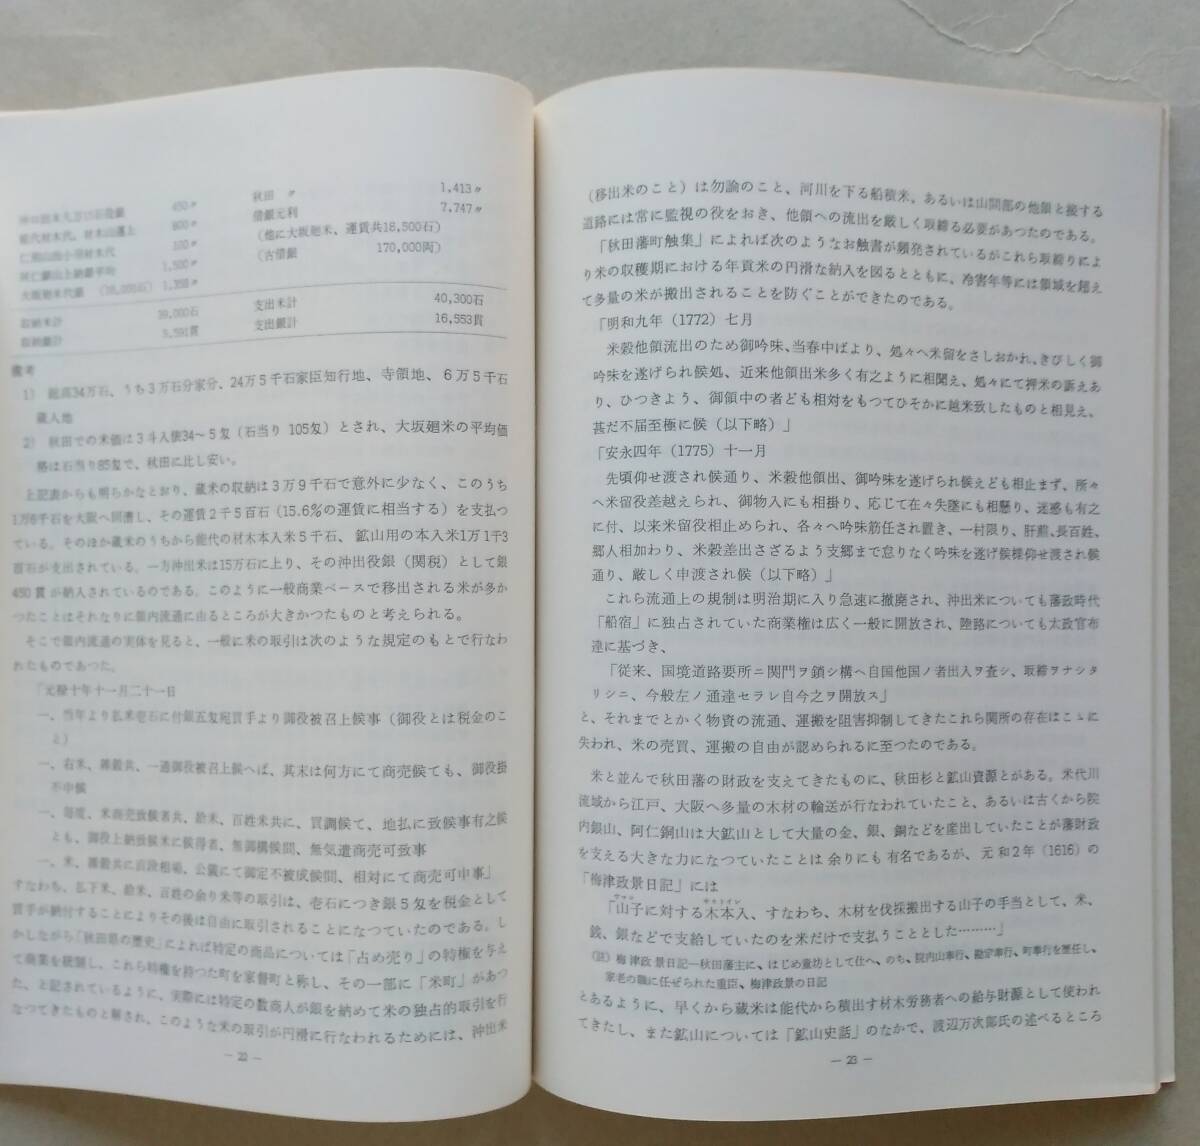 450〃
秋田 〃 1,413〃
能代材木代、材木山運上 600〃
借銀元利 7,747〃
仁別山出小羽材木代 100〃
(他に大坂廻米、運賃共18,500石)
阿仁銅山上納銀平均 1,500〃
(古借銀 170,000両)
大坂廻米代銀
収納米計 39,000石
支出米計 40,300石
収納銀計
支出銀計 16,553貫
備考
1) 総高34万石、うち3万石分家分、24万5千石家臣知行地、寺領地、6万5千石
蔵入地
2) 秋田での米価は3斗入俵34〜5匁(石当り 105匁)とされ、大坂廻米の平均価
格は石当り85匁で、秋田に比し安い。
上記表からも明らかなとおり、蔵米の収納は3万9千石で意外に少なく、このうち
1万6千石を大阪へ回漕し、その運賃2千5百石(15.6%の運賃に相当する)を支払つ
ている。そのほか蔵米のうちから能代の材木本入米5千石、鉱山用の本入米1万1千3
百石が支出されている。一方沖出米は15万石に上り、その沖出役銀(関税)として銀
450貫が納入されているのである。このように一般商業ベースで移出される米が多か
つたことはそれなりに領内流通に由るところが大きかつたものと考えられる。
そこで領内流通の実体を見ると、一般に米の取引は次のような規定のもとで行なわ
れたものであつた。
「元禄十年十一月二十一日
一、当年より払米壱石に付銀五匁宛買手より御役被召上候事(御役とは税金のこ
と)
一、右米、雑穀共、一通御役被召上候へば、其末は何方にて商売候ても、御役掛
不申候
一、毎度、米商売致候者共、給米、百姓米共に、買調候て、地払に致候事有之候
とも、御役上納致候米に候得者、無御構候間、無気遣商売可致事
一、米、雑穀共に直段相場、公儀にて御定不被成候間、相対にて商売可申事」
すなわち、払下米、給米、百姓の余り米等の取引は、壱石につき銀5匁を税金として
買手が納付することによりその後は自由に取引されることになつていたのである。し
かしながら「秋田県の歴史」によれば特定の商品については「占め売り」の特権を与え
て商業を統制し、これら特権を持つた町を家督町と称し、その一部に「米町」があつ
た、と記されているように、実際には特定の数商人が銀を納めて米の独占的取引を行
なつてきたものと解され、このような米の取引が円滑に行なわれるためには、沖出米
— 22 —
(移出米のこと)は勿論のこと、河川を下る船積米、あるいは山間部の他領と接する
道路には常に監視の役をおき、他領への流出を厳しく取締る必要があつたのである。
「秋田藩町触集」によれば次のようなお触書が頻発されているがこれら取締りによ
り米の収穫期における年貢米の円滑な納入を図るとともに、冷害年等には領域を超え
て多量の米が搬出されることを防ぐことができたのである。
「明和九年(1772)七月
米穀他領流出のため御吟味、当春中ばより、処々へ米留をさしおかれ、きびしく御
吟味を遂げられ候処、近来他領出米多く有之ように相聞え、処々にて押米の訴えあ
り、ひつきよう、御領中の者ども相対をもつてひそかに越米致したものと相見え、
甚だ不届至極に候(以下略)」
「安永四年(1775)十一月
先頃仰せ渡され候通り、米穀他領出、御吟味を遂げられ候えども相止まず、所々
へ米留役差越えられ、御物入にも相掛り、応じて在々失墜にも相懸り、迷惑も有之
に付、以来米留役相止められ、各々へ吟味筋任され置き、一村限り、肝煎、長百姓、
郷人相加わり、米穀差出さざるよう支郷まで怠りなく吟味を遂げ候様仰せ渡され候
通り、厳しく申渡され候(以下略)」
これら流通上の規制は明治期に入り急速に撤廃され、沖出米についても藩政時代
「船宿」に独占されていた商業権は広く一般に開放され、陸路についても太政官布
達に基づき、
「従来、国境道路要所ニ関門ヲ鎖シ構ヘ自国他国ノ者出入ヲ査シ、取締ヲナシタ
リシニ、今般左ノ通達セラレ自今之ヲ開放ス」
と、それまでとかく物資の流通、運搬を阻害抑制してきたこれら関所の存在はこゝに
失われ、米の売買、運搬の自由が認められるに至つたのである。
米と並んで秋田藩の財政を支えてきたものに、秋田杉と鉱山資源とがある。米代川
流域から江戸、大阪へ多量の木材の輸送が行なわれていたこと、あるいは古くから院
内銀山、阿仁銅山は大鉱山として大量の金、銀、銅などを産出していたことが藩財政
を支える大きな力になつていたことは余りにも有名であるが、元和2年(1616)の
「梅津政景日記」には
「山子に対する木本入、すなわち、木材を伐採搬出する山子の手当として、米、
銭、銀などで支給していたのを米だけで支払うこととした………」
(註) 梅津政景日記—秋田藩主に、はじめ童坊として仕へ、のち、院内山奉行、勘定奉行、町奉行を歴任し、
家老の職に任ぜられた重臣、梅津政景の日記
とあるように、早くから蔵米は能代から積出す材木労務者への給与財源として使われ
てきたし、また鉱山については「鉱山史話」のなかで、渡辺万次郎氏の述べるところ
— 23 —